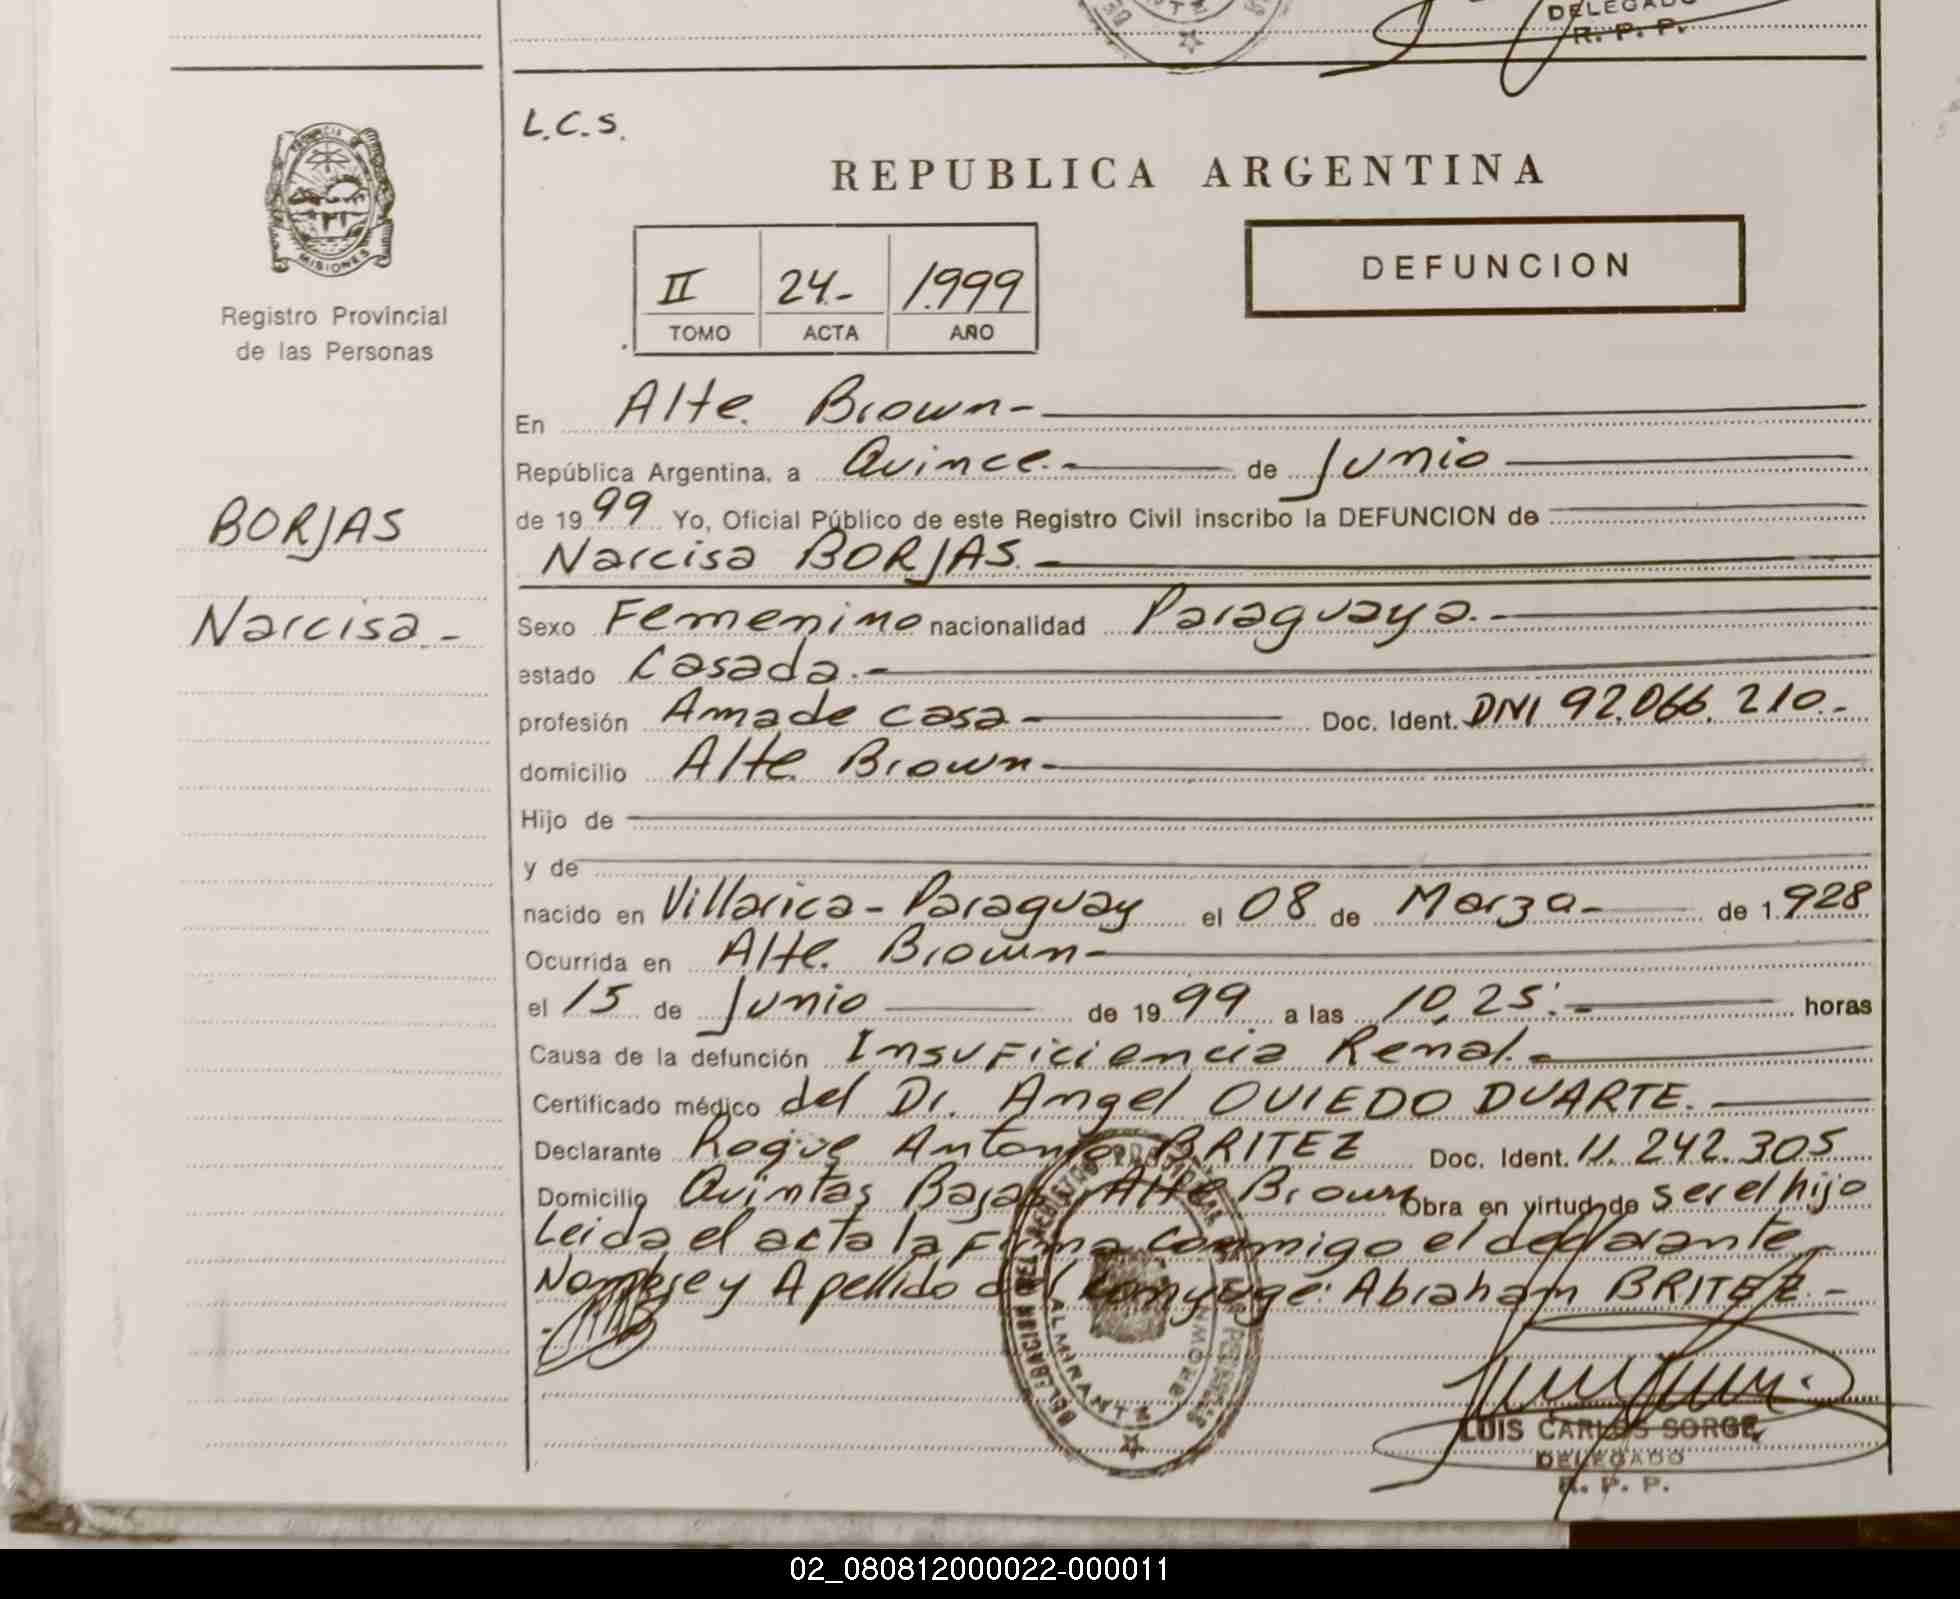 DELEGADO
R. P. P.
L.C.S.
REPUBLICA ARGENTINA
PROVINCIA DE
MISIONES
Registro Provincial
de las Personas
II 24.- 1.999
TOMO ACTA AÑO
DEFUNCION
BORJAS
Narcisa.-
En Alte. Brown-
República Argentina, a Quince.- de Junio
de 1999 Yo, Oficial Público de este Registro Civil inscribo la DEFUNCION de
Narcisa BORJAS.-
Sexo Femenino nacionalidad Paraguaya.-
estado Casada.-
profesión Ama de casa- Doc. Ident. DNI 92.066.210.-
domicilio Alte. Brown-
Hijo de
y de
nacido en Villarica - Paraguay el 08 de Marzo- de 1.928
Ocurrida en Alte. Brown-
el 15 de Junio de 1999. a las 10,25:- horas
Causa de la defunción Insuficiencia Renal.-
Certificado médico del Dr. Angel OVIEDO DUARTE.
Declarante Roque Antonio BRITEZ Doc. Ident. 11.242.305
Domicilio Quintas Bajas Alte Brown Obra en virtud de ser el hijo
Leida el acta la Firma conmigo el declarante-
Nombre y Apellido del Conyuge: Abraham BRITEZ.-
ALMIRANTE BROWN
LUIS CARLOS SORGE
DELEGADO
R. P. P.
02_080812000022-000011